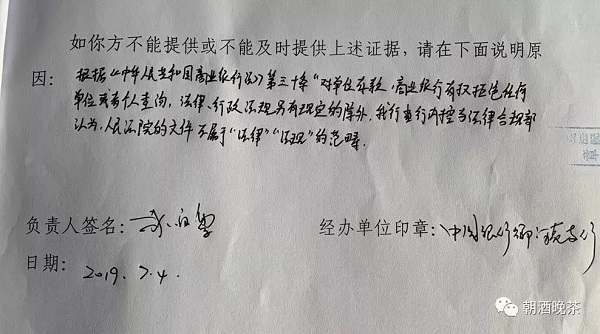 如你方不能提供或不能及时提供上述证据，请在下面说明原
因：根据《中华人民共和国商业银行法》第三十条“对单位存款，商业银行有权拒绝任何
单位或者个人查询，法律、行政法规另有规定的除外，我行直行内控与法律合规部
认为，人民法院的文件不属于“法律”“法规”的范畴．
负责人签名：
经办单位印章：中国银行
日期：2019.7.4.
朝酒晚茶